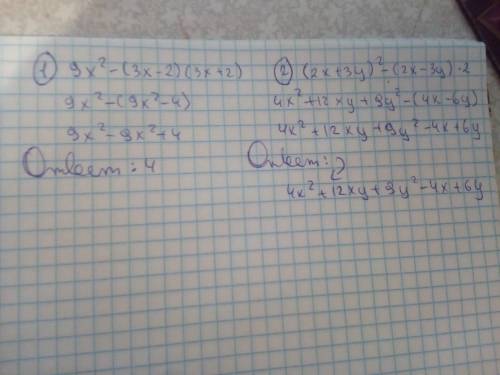 ① 9x² - (3x - 2)(3x + 2)
9x² - (9x² - 4)
9x² - 9x² + 4
Ответ: 4
② (2x + 3y)² - (2x - 3y) · 2
4x² + 12xy + 9y² - (4x - 6y)
4x² + 12xy + 9y² - 4x + 6y
Ответ:
4x² + 12xy + 9y² - 4x + 6y